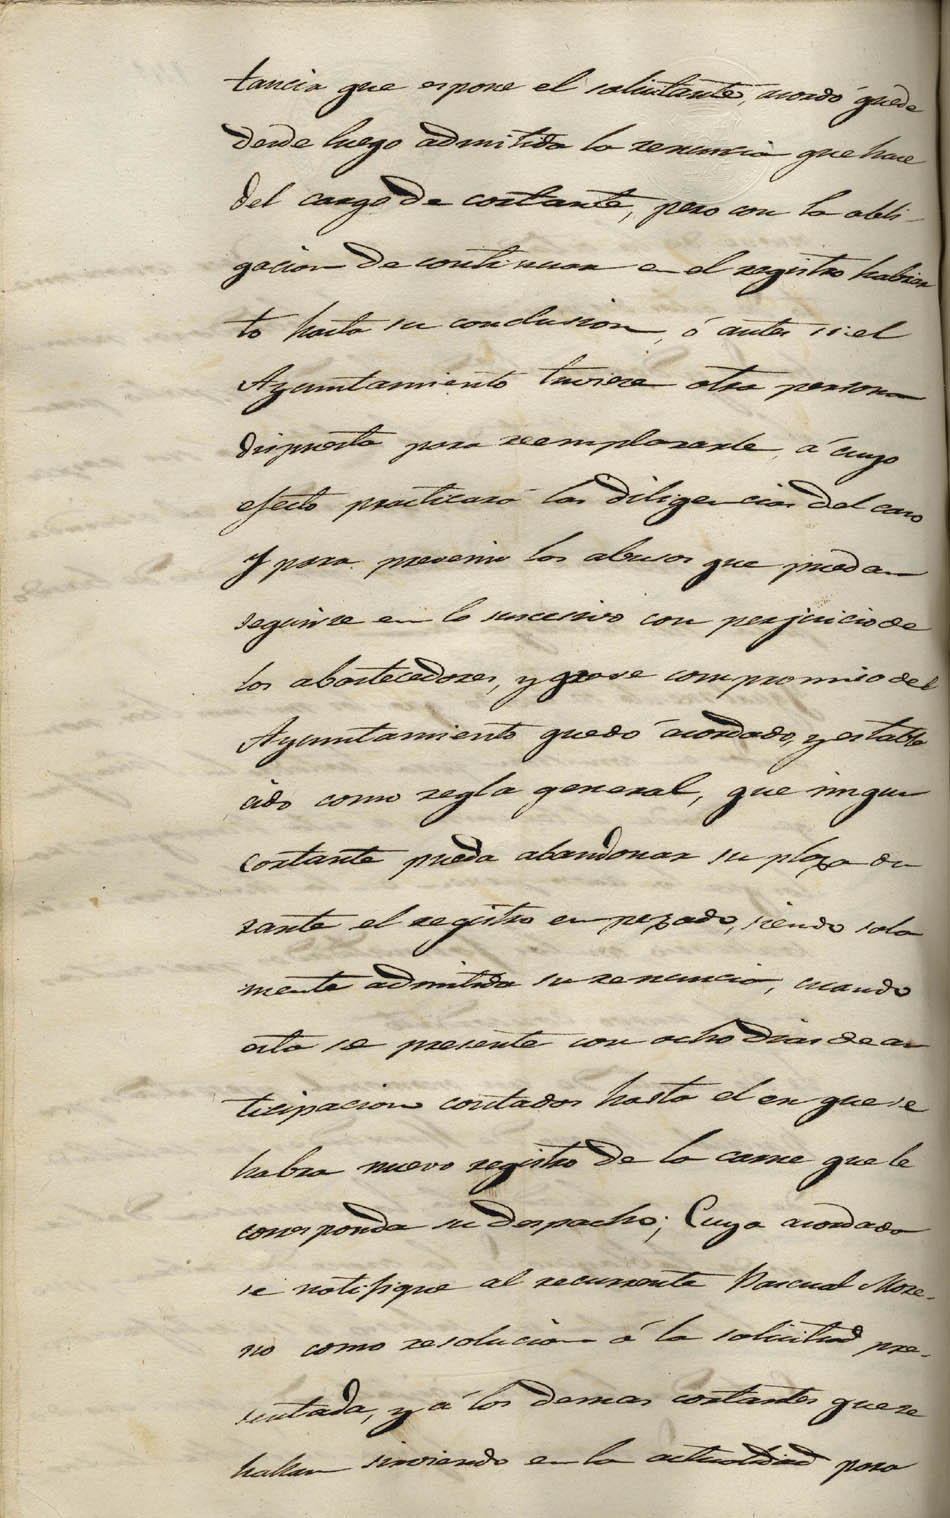 tancia que espone el solicitante, acordó quede
desde luego admitida la renuncia que hace
del cargo de cortante, pero con la obli-
gacion de continuar en el registro habier
to hasta su conclusion, ó antes si el
Ayuntamiento tuviere otra persona
dispuesta para reemplazarle, á cuyo
efecto practicará las diligencias del caso
Y para prevenir los abusos que puedan
seguirse en lo sucesivo con perjuicio de
los abastecedores, y grave compromiso del
Ayuntamiento quedó acordado, y estable
cido como regla general, que ningun
cortante pueda abandonar su plaza du
rante el registro empezado, siendo sola
mente admitida su renuncia, cuando
esta se presente con ocho dias de an
ticipacion contados hasta el en que se
habra nuevo registro de la carne que le
corresponda su despacho; Cuyo acordado
se notifique al recurrente Pascual More-
no como resolucion á la solicitud pre-
sentada, y á los demas cortantes que se
hallan sirviendo en la actualidad para